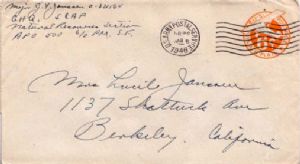 Maj. J. V. Janover
G.H.Q. SCAP
Natural Resources Section
APO 500 c/o P.M. S.F.
U.S. ARMY POSTAL SERVICE
1946
Miss Lucile Janover
1137 Shattuck Ave
Berkeley,
California